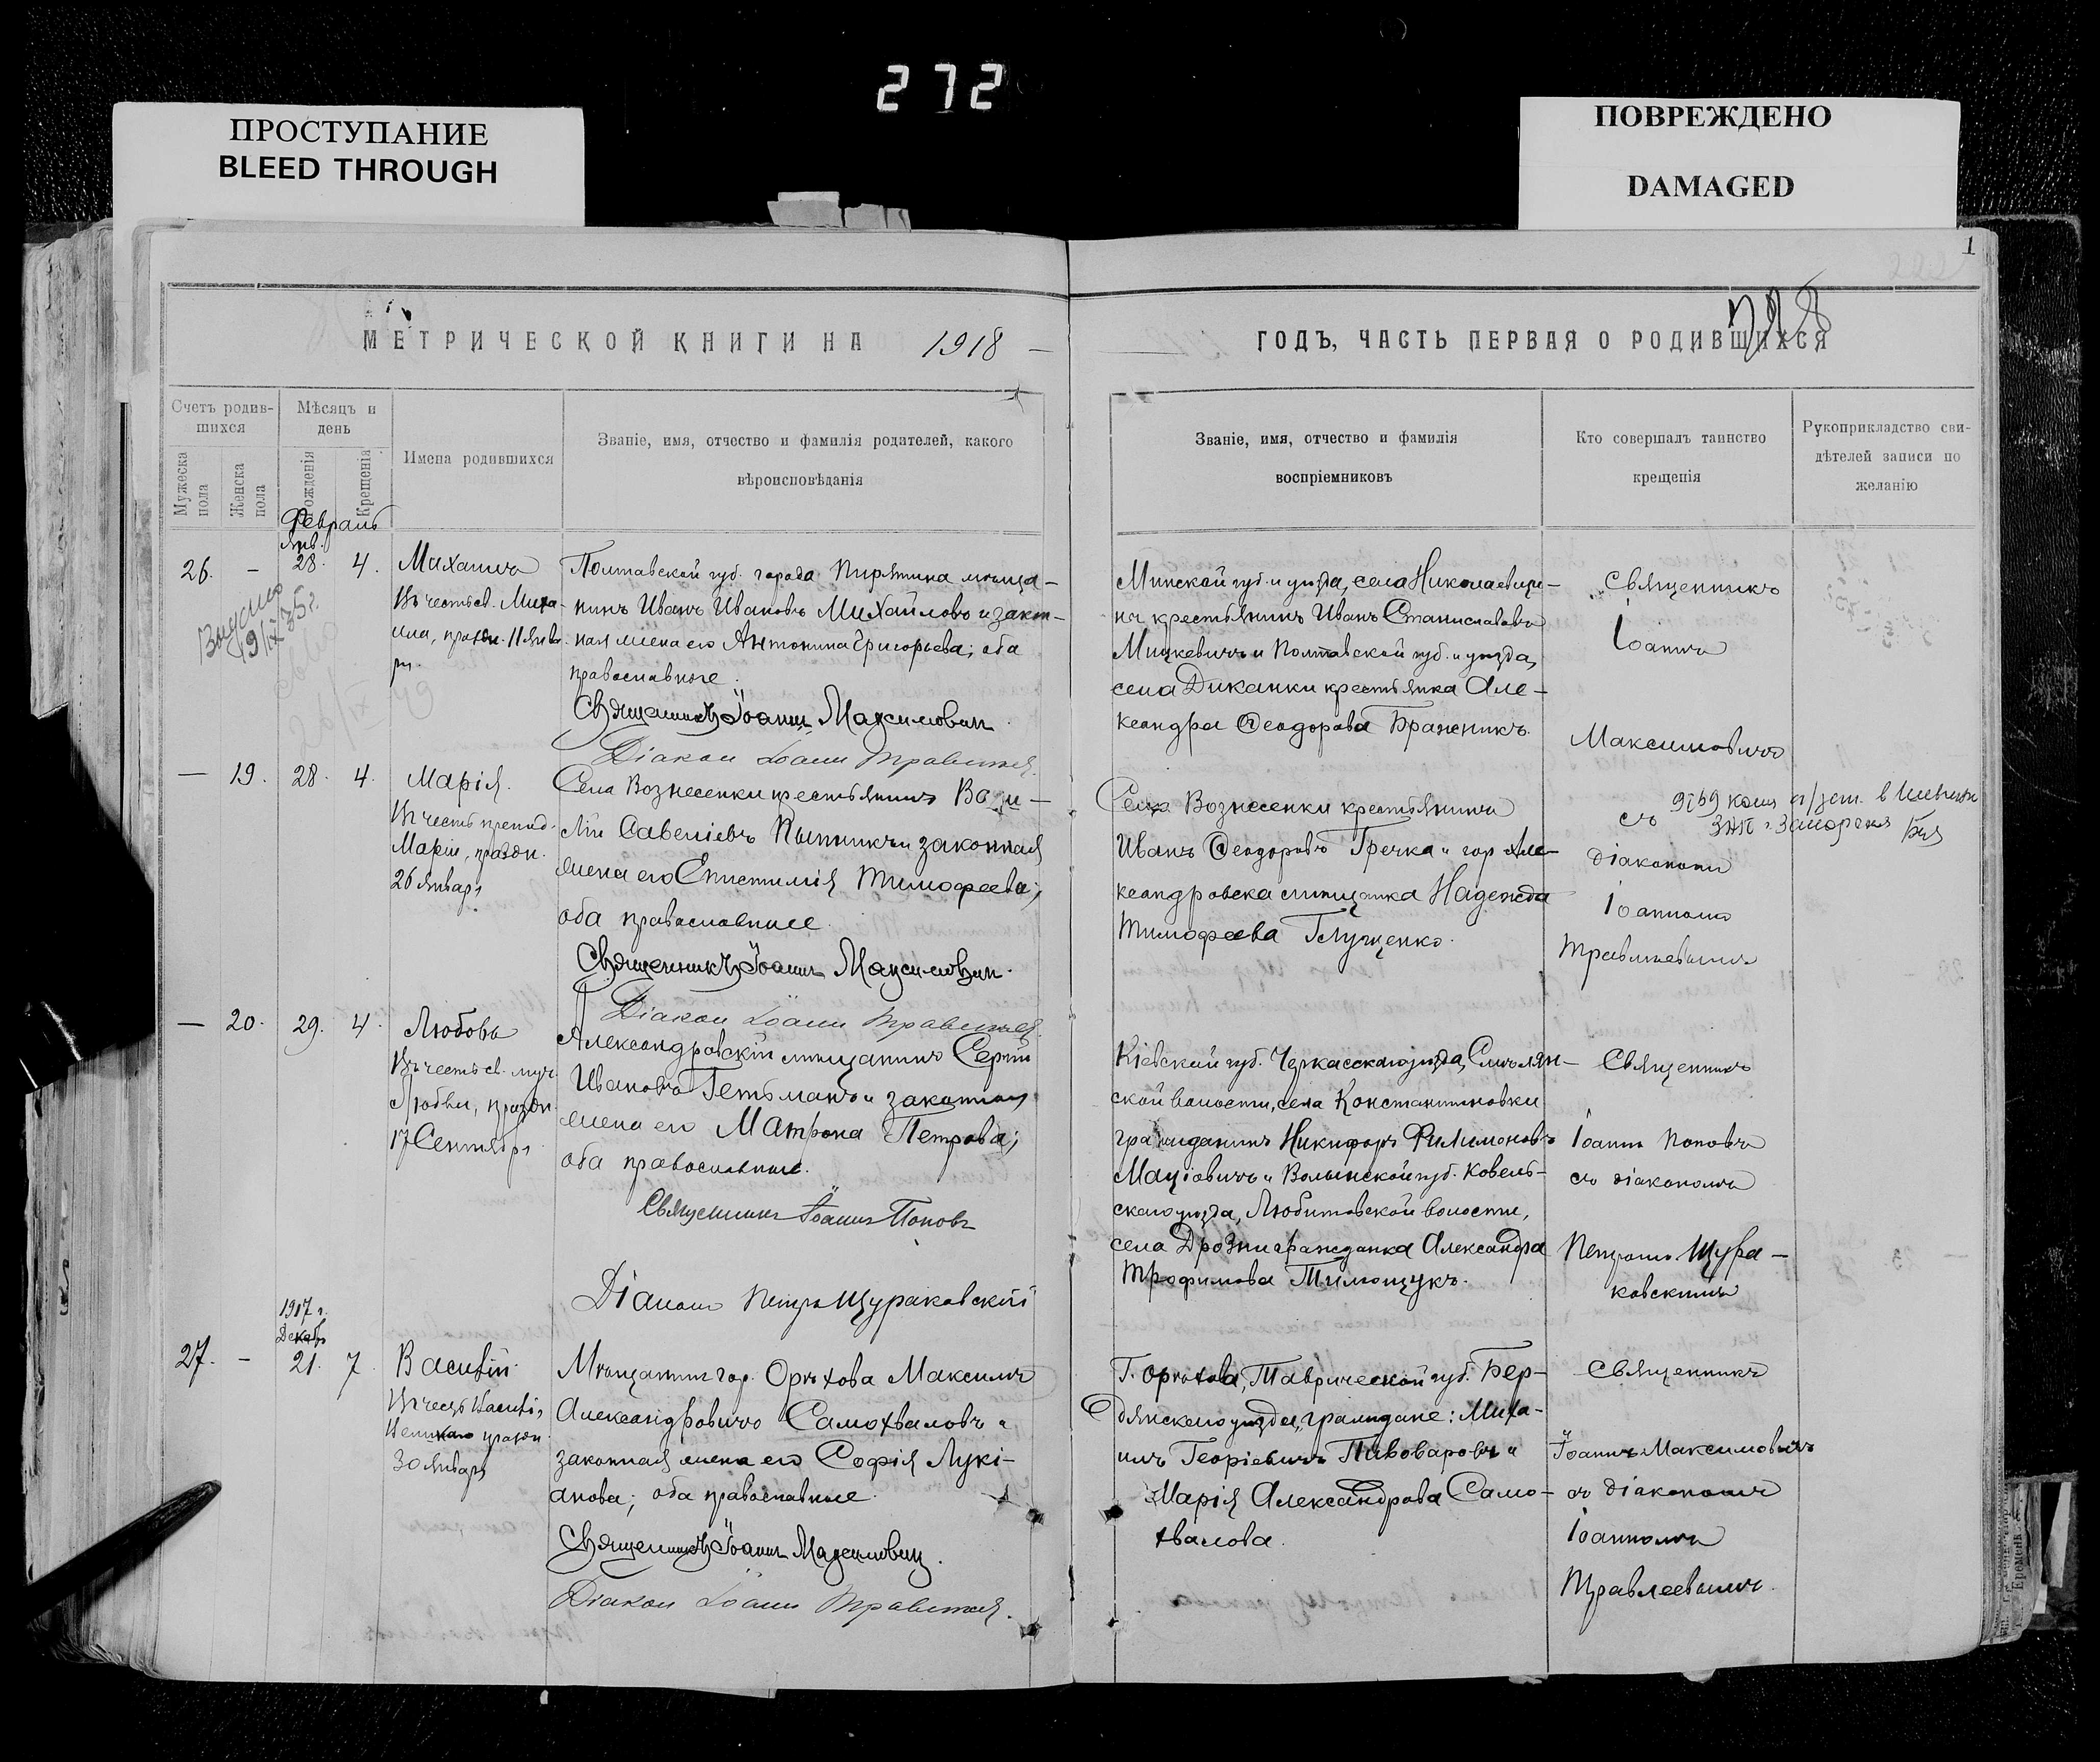 272
ПРОСТУПАНИЕ
BLEED THROUGH
ПОВРЕЖДЕНО
DAMAGED
1
МЕТРИЧЕСКОЙ КНИГИ НА 1918
ГОДЪ, ЧАСТЬ ПЕРВАЯ О РОДИВШИХСЯ
Счетъ родив-
шихся
Мужеска пола
Женска пола
Мѣсяцъ и
день
Рожденія
Крещенія
Имена родившихся
Званіе, имя, отчество и фамилія родителей, какого
вѣроисповѣданія
Званіе, имя, отчество и фамилія
воспріемниковъ
Кто совершалъ таинство
крещенія
Рукоприкладство сви-
дѣтелей записи по
желанію
Февраль
Янв.
26. – 28. 4.
Михаилъ
Въ честь св. Миха-
ила, праздн. 11 Янва
ря.
Полтавской губ. города Пирятина мѣща-
нинъ Иванъ Ивановъ Михайловъ и закон-
ная жена его Антонина Григорьева; оба
православные.
Священникъ Іоаннъ Максимович.
Діакон Іоанн Травлеев.
Минской губ. и уѣзда, села Николаевщи-
ны крестьянинъ Иванъ Станиславовъ
Мицкевичъ и Полтавской губ. и уѣзда,
села Диканки крестьянка Але-
ксандра Ѳеодорова Браженикъ.
Священникъ
Іоаннъ
Максимовичъ
съ
діакономъ
Іоанномъ
Травлеевымъ
Выдано
9/IX 35г.
— 19. 28. 4.
Марія.
Въ честь препод.
Маріи, праздн.
26 Января
Села Вознесенки крестьянинъ Васи-
лій Савеліевъ Пытникъ и законная
жена его Епистимія Тимофеева;
оба православные.
Священникъ Іоаннъ Максимович.
Діакон Іоанн Травлеев.
Села Вознесенки крестьянинъ
Иванъ Ѳеодоровъ Гречка и гор. Але-
ксандровска мѣщанка Надежда
Тимофеева Глущенко.
— 20. 29. 4.
Любовь
Въ честь св. муч.
Любви, праздн.
17 Сентября
Александровскій мѣщанинъ Сергій
Ивановъ Гетьманъ и законная
жена его Матрона Петрова;
оба православные.
Священникъ Іоаннъ Поповъ
Діаконъ Петръ Щураковскій
Кіевской губ. Черкасскаго уѣзда, Смѣлян-
ской волости, села Константиновки
гражданинъ Никифоръ Филимоновъ
Маціовичъ и Волынской губ. Ковель-
скаго уѣзда, Любитовской волости,
села Дрозни гражданка Александра
Трофимова Тимощукъ.
Священникъ
Іоаннъ Поповъ
съ діакономъ
Петромъ Щура-
ковскимъ
1917 г.
Декабр.
27. – 21. 7.
Василій.
Въ честь Василія
Великаго праздн.
30 Января
Мѣщанинъ гор. Орѣхова Максимъ
Александровичъ Самохваловъ и
законная жена его Софія Лукі-
анова; оба православные.
Священникъ Іоаннъ Максимович.
Діакон Іоанн Травлеев.
Г. Орѣхова, Таврической губ. Бер-
дянскаго уѣзда, граждане: Миха-
илъ Георгіевичъ Пивоваровъ и
Марія Александрова Само-
хвалова.
Священникъ
Іоаннъ Максимовичъ
съ діакономъ
Іоанномъ
Травлеевымъ.